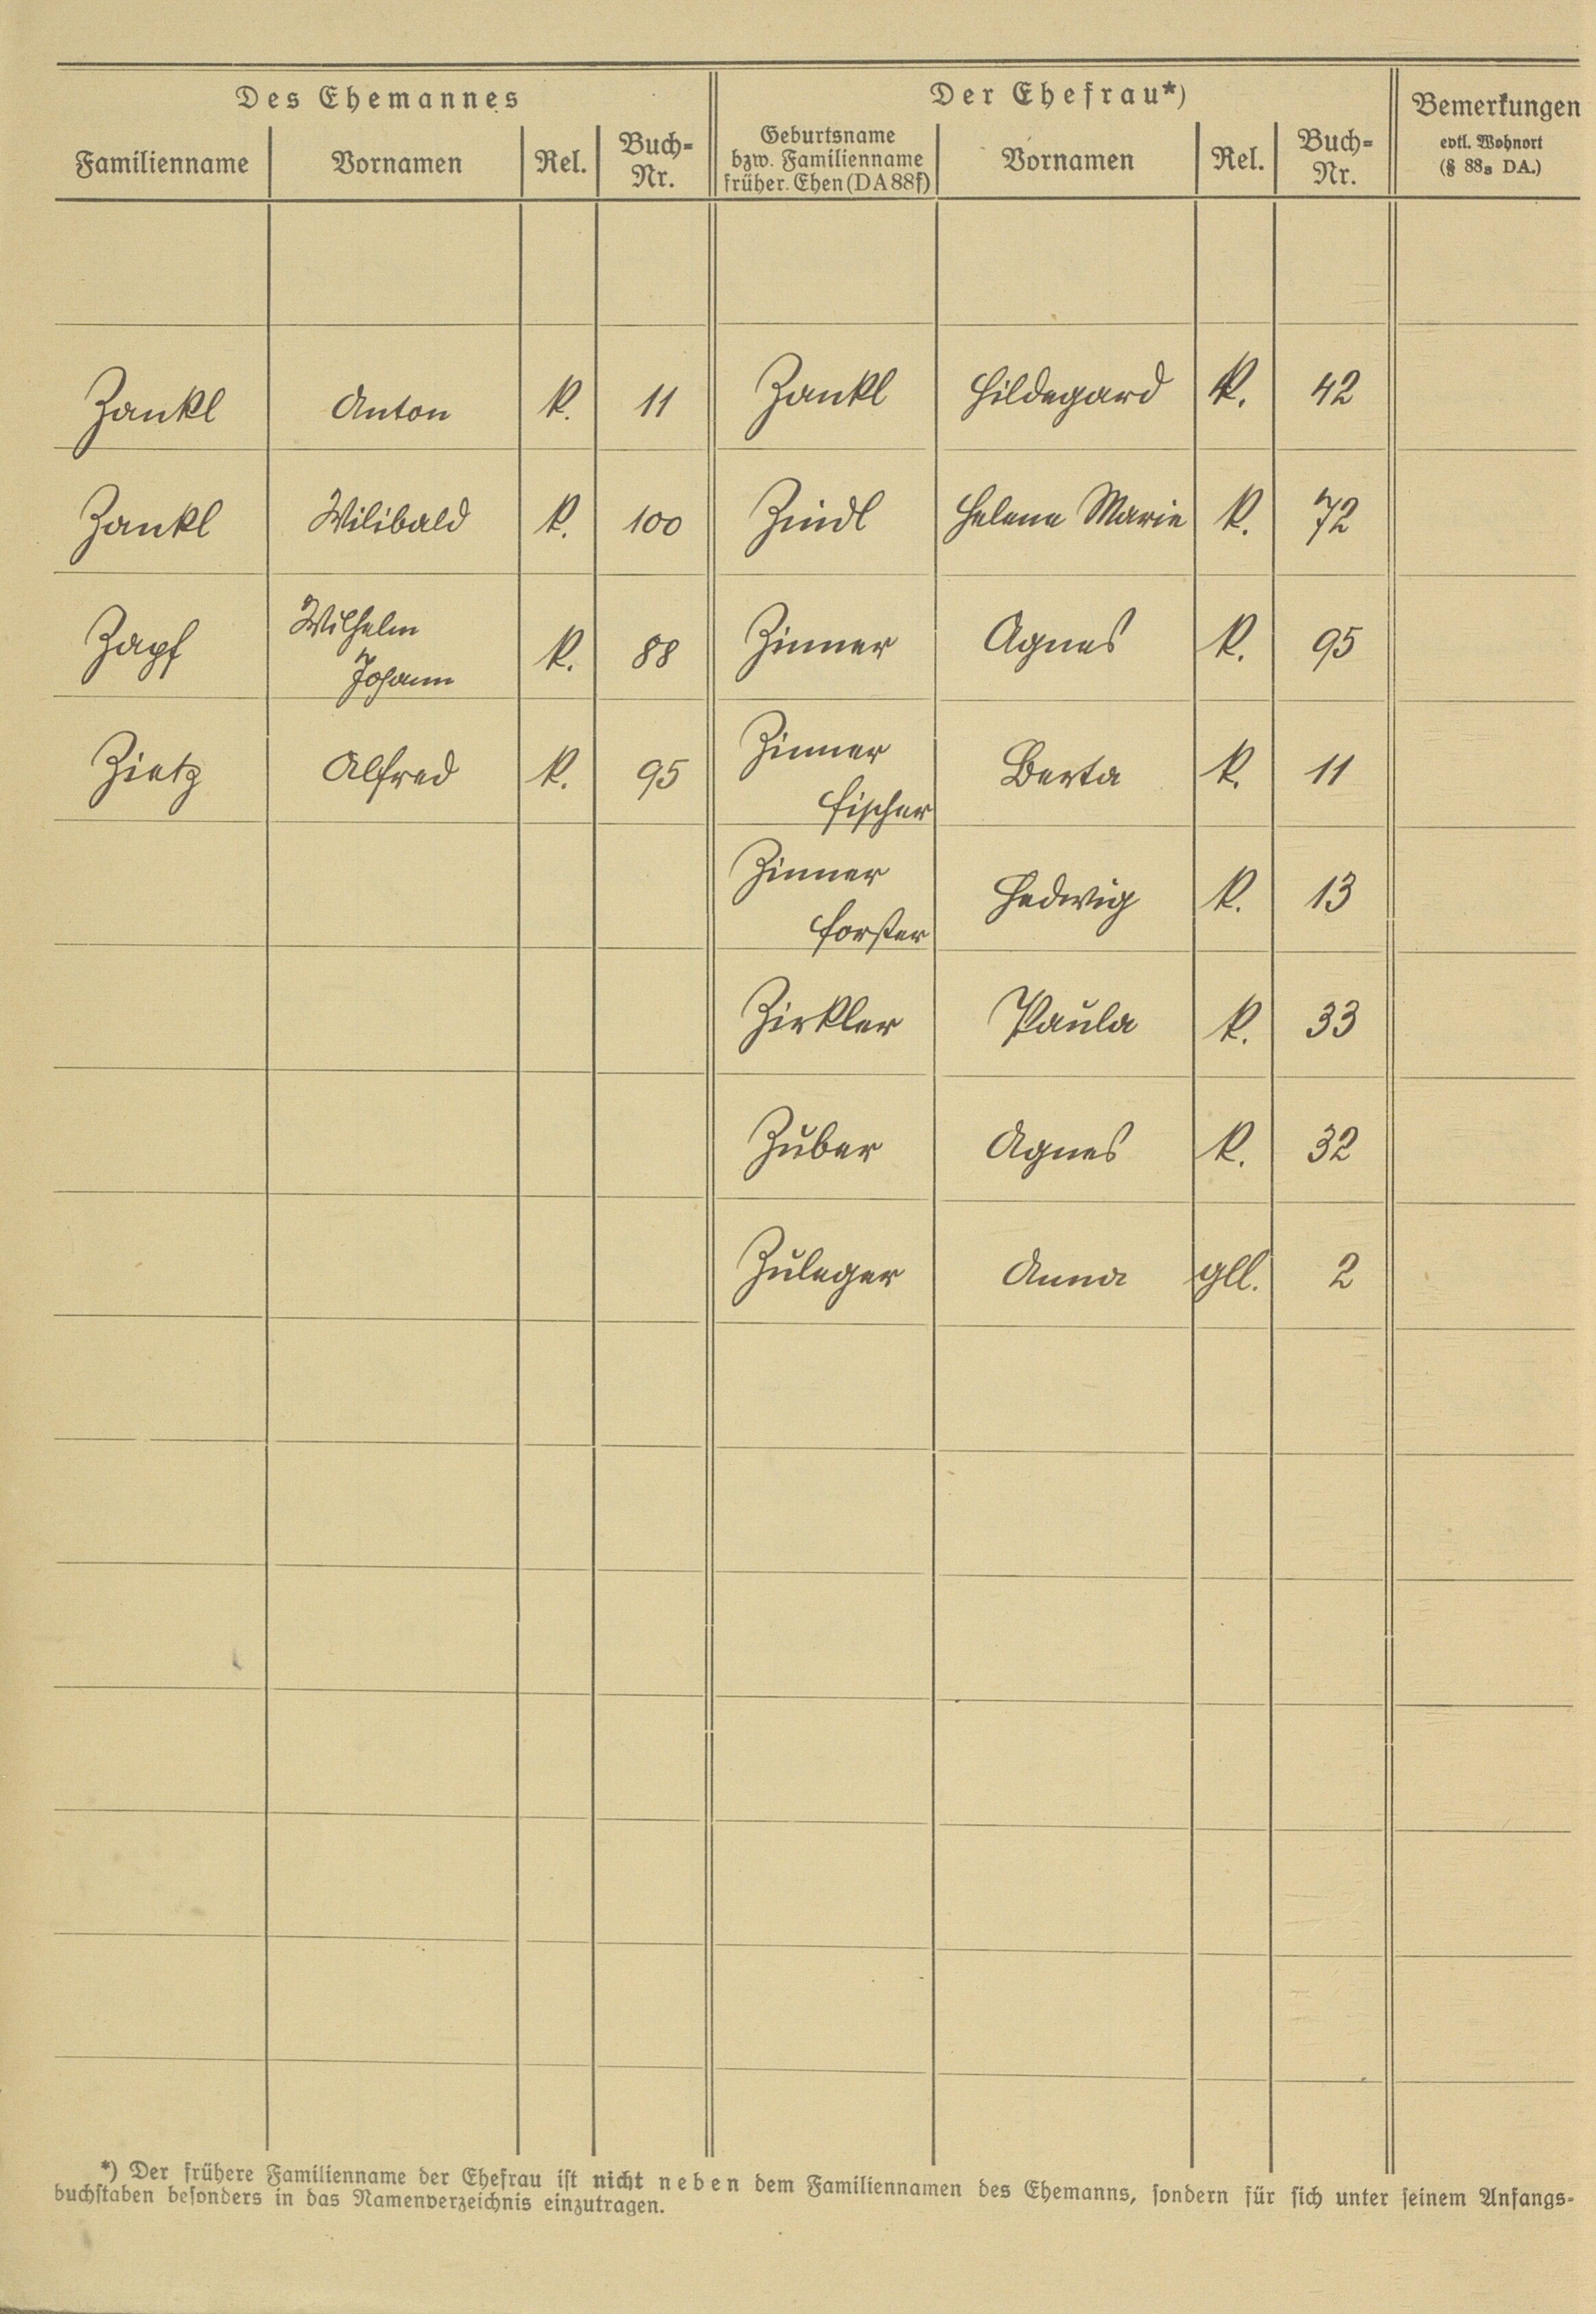 Des Ehemannes Der Ehefrau*) Bemerkungen
Familienname Vornamen Rel. Buch-Nr. Geburtsname bzw. Familienname früher. Ehen (DA 88f) Vornamen Rel. Buch-Nr. evtl. Wohnort (§ 88₈ DA.)
Zankl Anton k. 11 Zankl Hildegard k. 42
Zankl Wilibald k. 100 Zindl Helene Marie k. 72
Zapf Wilhelm Johann k. 88 Zinner Agnes k. 95
Zietz Alfred k. 95 Zinner Fischer Berta k. 11
Zinner Forster Hedwig k. 13
Zirkler Paula k. 33
Zuber Agnes k. 32
Zuleger Anna gll. 2
*) Der frühere Familienname der Ehefrau ist nicht neben dem Familiennamen des Ehemanns, sondern für sich unter seinem Anfangs-
buchstaben besonders in das Namenverzeichnis einzutragen.